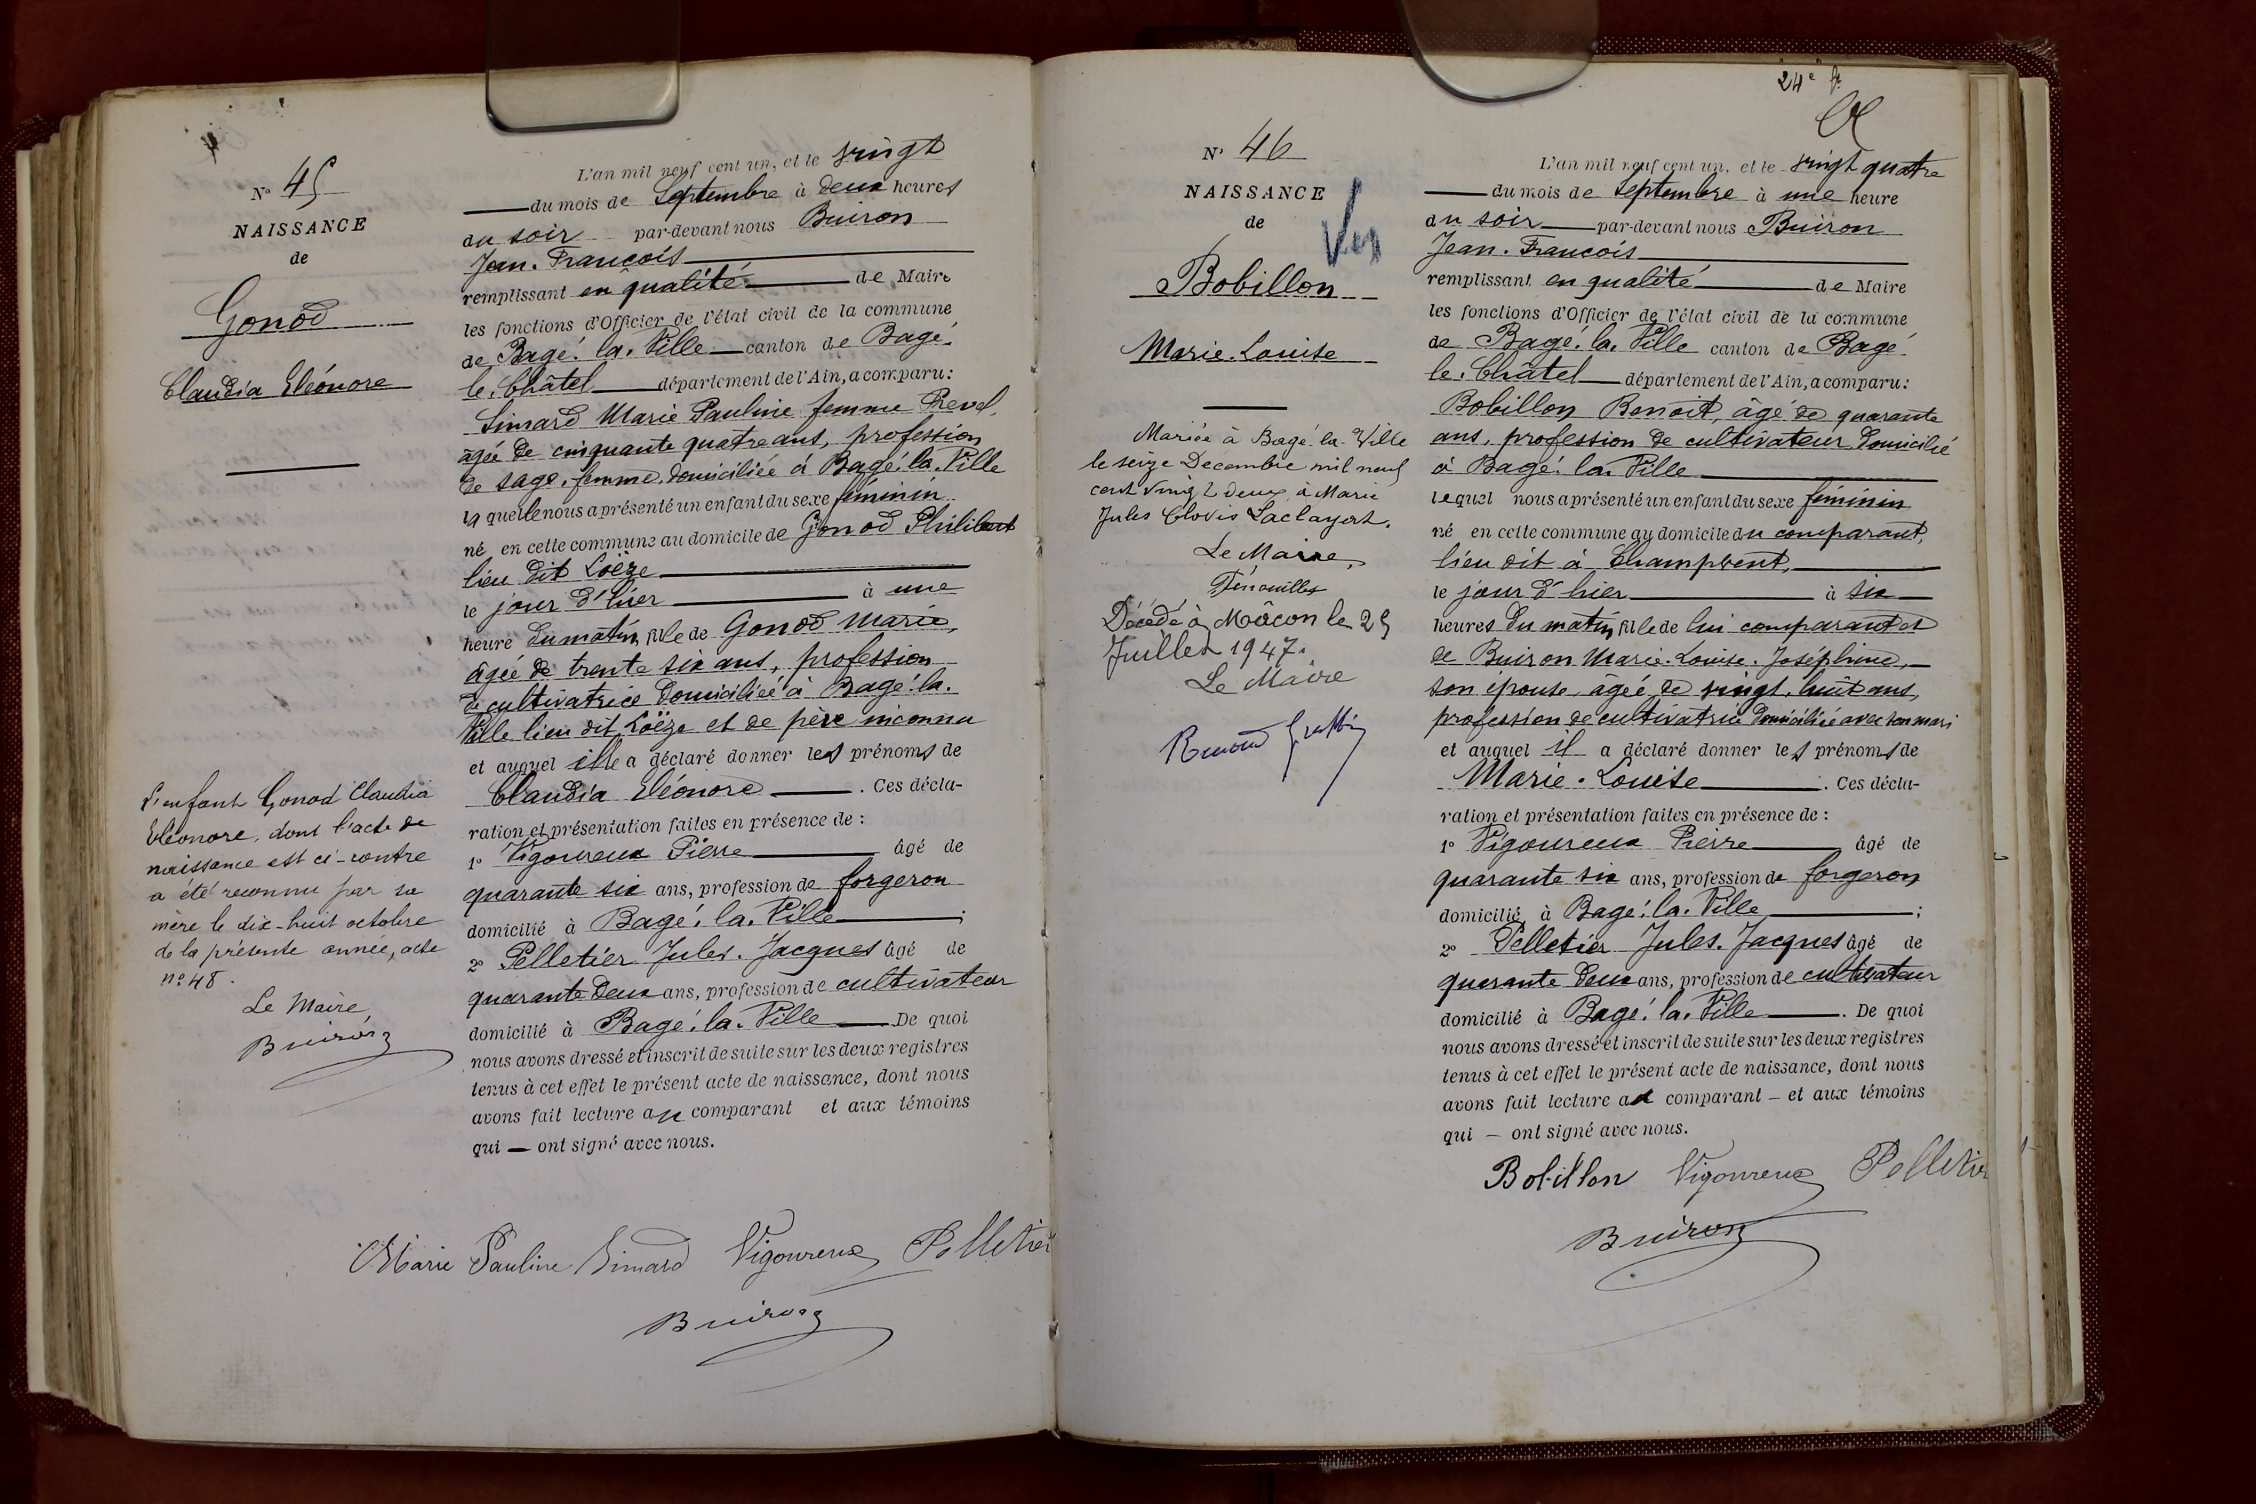 Nº 45
NAISSANCE
de
Gonod
Claudia Eléonore
L'enfant Gonod Claudia
Eléonore, dont l'acte de
naissance est ci-contre
a été reconnu par sa
mère le dix-huit octobre
de la présente année, acte
nº 48.
Le Maire
Buiron
L'an mil neuf cent un, et le vingt
du mois de Septembre à deux heures
du soir par-devant nous Buiron
Jean-François
remplissant en qualité de Maire
les fonctions d'Officier de l'état civil de la commune
de Bagé-la-Ville canton de Bagé-
le-Châtel département de l'Ain, a comparu:
Simard Marie Pauline femme Revel,
âgée de cinquante quatre ans, profession
de sage-femme, domiciliée à Bagé-la-Ville
laquelle nous a présenté un enfant du sexe féminin
né en cette commune au domicile de Gonod Philibert
lieu dit Loëze
le jour d'hier à une
heure du matin, fille de Gonod Marie,
âgée de trente six ans, profession
de cultivatrice domiciliée à Bagé-la-
Ville lieu dit Loëze et de père inconnu
et auquel elle a déclaré donner les prénoms de
Claudia Eléonore . Ces décla-
ration et présentation faites en présence de :
1º Vigoureux Pierre âgé de
quarante six ans, profession de forgeron
domicilié à Bagé-la-Ville ;
2º Pelletier Jules-Jacques âgé de
quarante deux ans, profession de cultivateur
domicilié à Bagé-la-Ville De quoi
nous avons dressé et inscrit de suite sur les deux registres
tenus à cet effet le présent acte de naissance, dont nous
avons fait lecture au comparant et aux témoins
qui — ont signé avec nous.
Marie Pauline Simard Vigoureux Pelletier
Buiron
24e f.
Nº 46
NAISSANCE
de
Bobillon
Marie-Louise
Mariée à Bagé-la-Ville
le seize Décembre mil neuf
cent vingt deux, à Marie
Jules Clovis Laclayort.
Le Maire,
Décédé à Mâcon le 25
Juillet 1947.
Le Maire
L'an mil neuf cent un, et le vingt quatre
du mois de Septembre à une heure
du soir par-devant nous Buiron
Jean-François
remplissant en qualité de Maire
les fonctions d'Officier de l'état civil de la commune
de Bagé-la-Ville canton de Bagé-
le-Châtel département de l'Ain, a comparu:
Bobillon Benoit, âgé de quarante
ans, profession de cultivateur domicilié
à Bagé-la-Ville
lequel nous a présenté un enfant du sexe féminin
né en cette commune au domicile du comparant,
lieu dit à Champvent,
le jour d'hier à six
heures du matin, fille de lui comparant et
de Buiron Marie-Louise-Joséphine,
son épouse, âgée de vingt-huit ans,
profession de cultivatrice domiciliée avec son mari
et auquel il a déclaré donner les prénoms de
Marie-Louise . Ces décla-
ration et présentation faites en présence de :
1º Vigoureux Pierre âgé de
quarante six ans, profession de forgeron
domicilié à Bagé-la-Ville ;
2º Pelletier Jules-Jacques âgé de
quarante deux ans, profession de cultivateur
domicilié à Bagé-la-Ville . De quoi
nous avons dressé et inscrit de suite sur les deux registres
tenus à cet effet le présent acte de naissance, dont nous
avons fait lecture au comparant — et aux témoins
qui — ont signé avec nous.
Bobillon Vigoureux Pelletier
Buiron